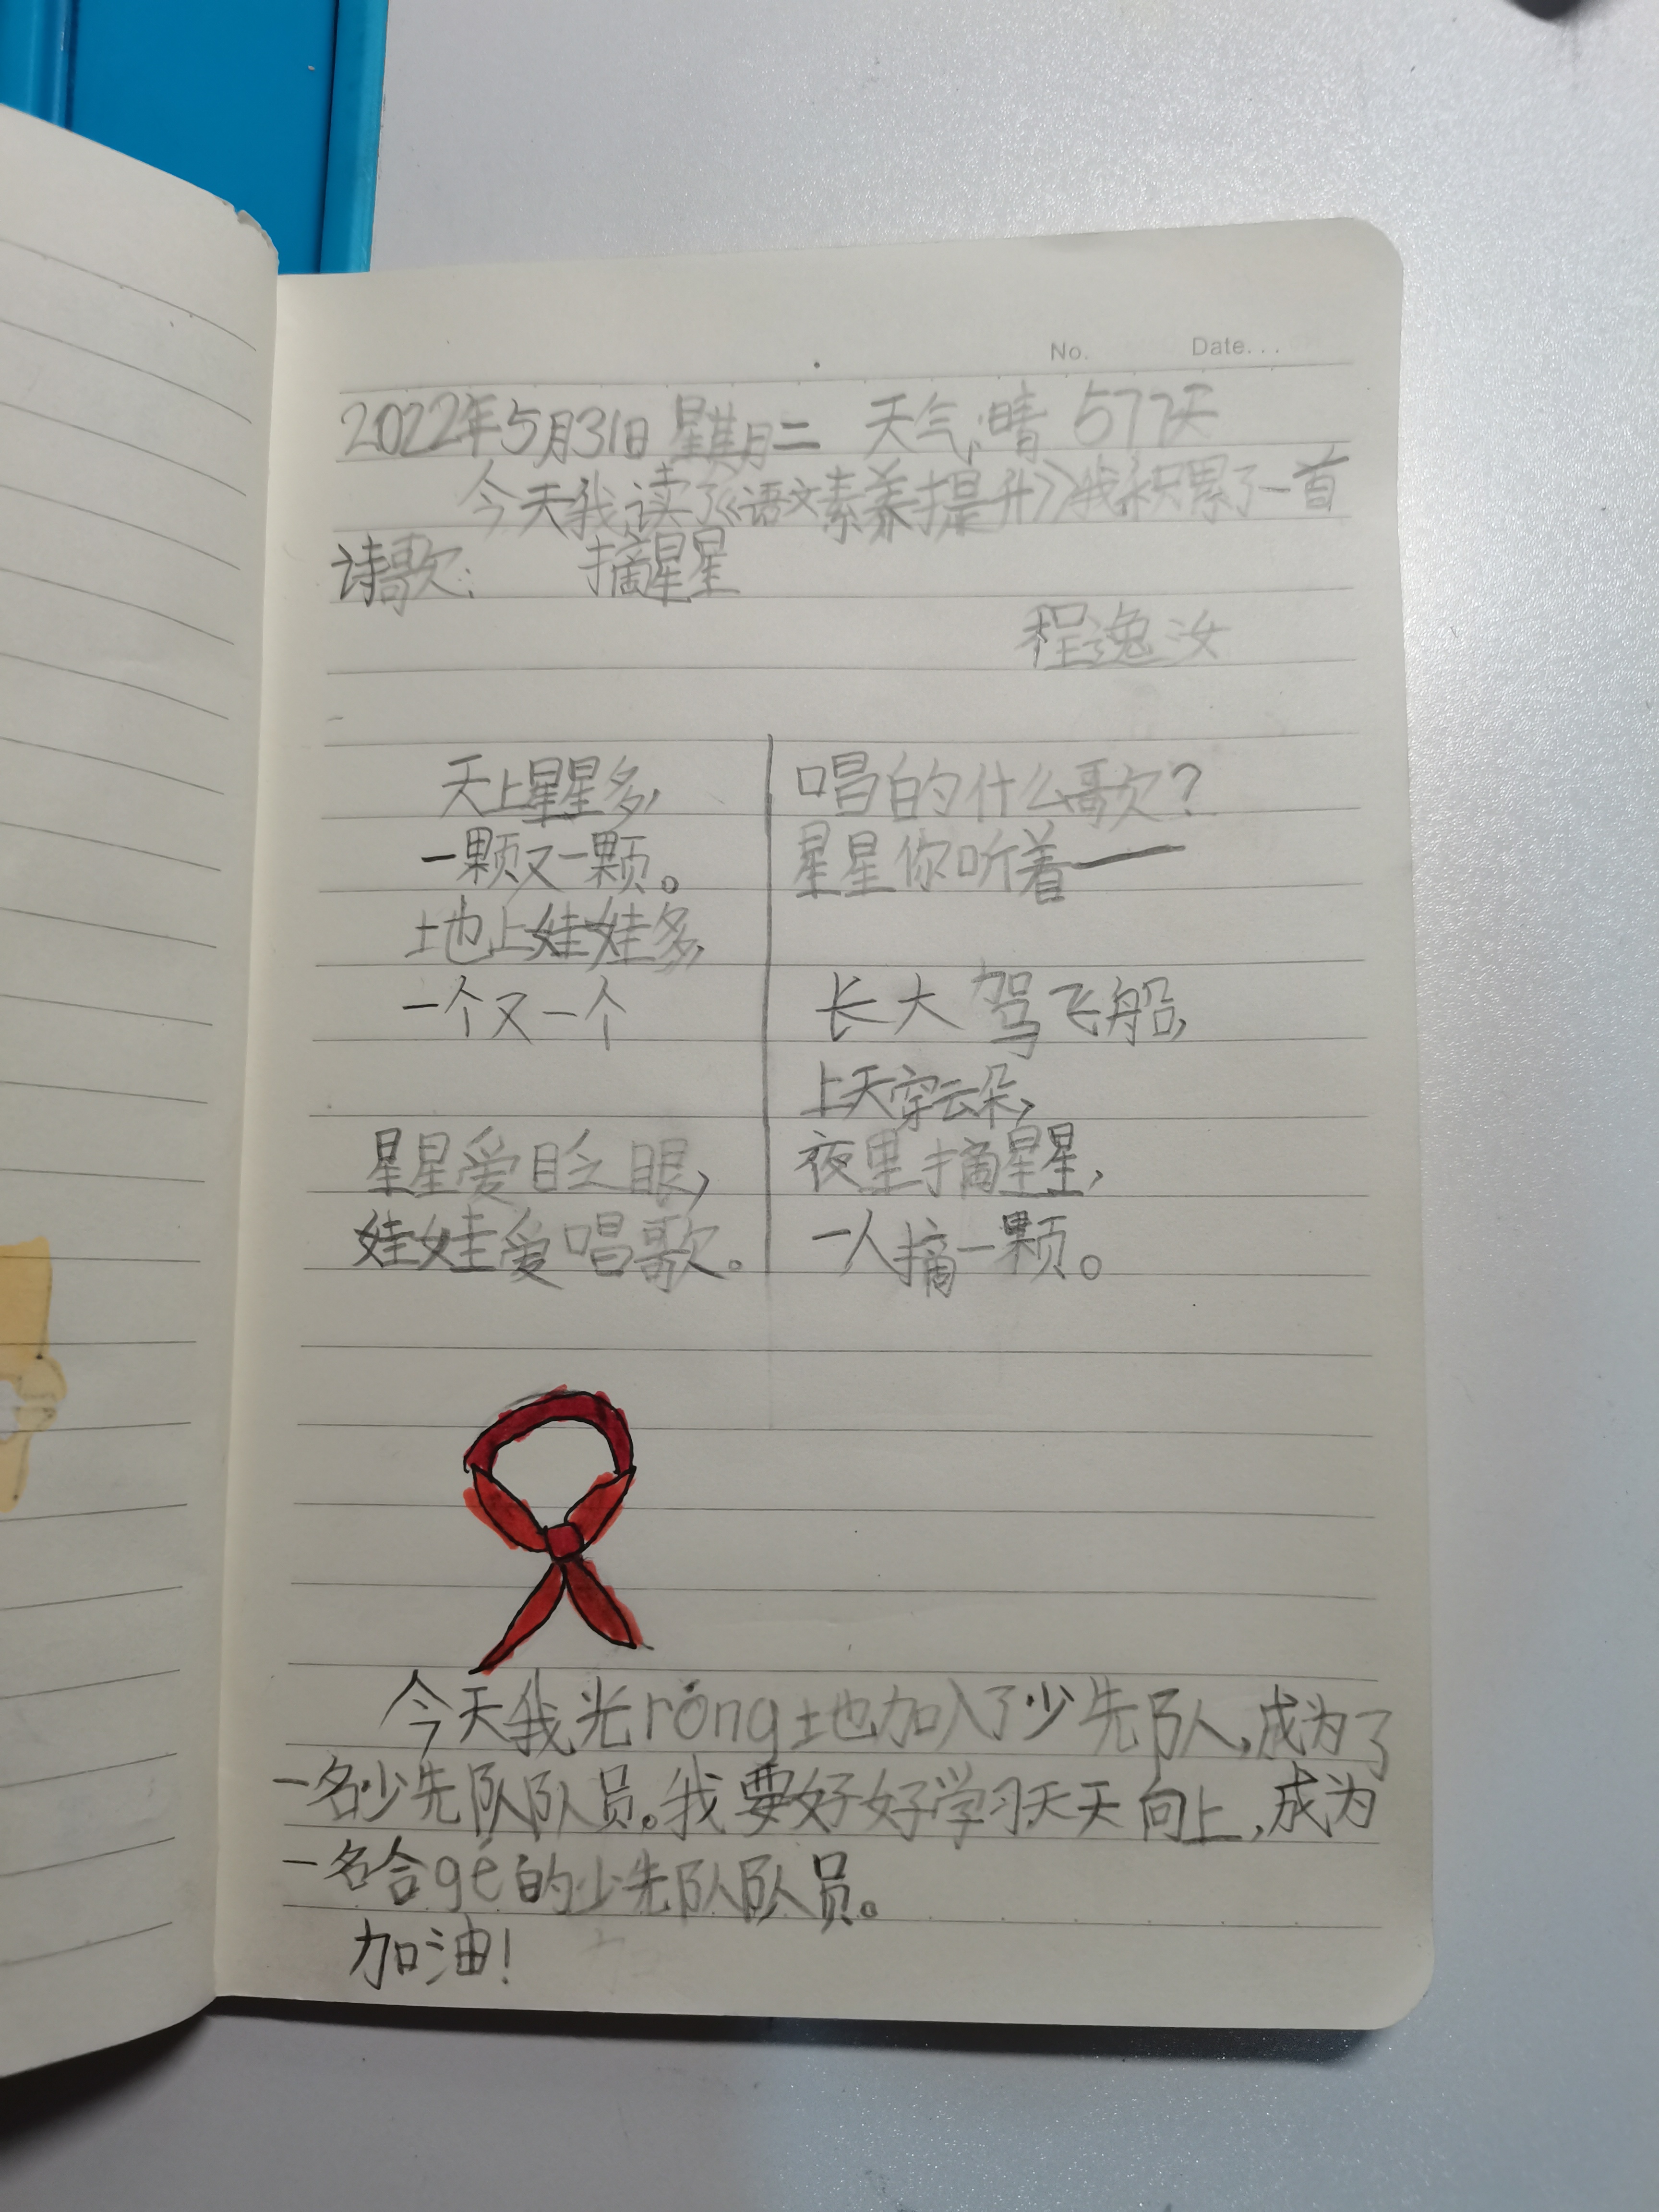 No. Date...
2022年5月31日 星期二 天气:晴 577天
今天我读了《语文素养提升》我积累了一首
诗歌: 摘星星
程逸汝
天上星星多,
一颗又一颗。
地上娃娃多,
一个又一个
星星爱眨眼,
娃娃爱唱歌。
唱的什么歌?
星星你听着——
长大驾飞船,
上天穿云朵,
夜里摘星星,
一人摘一颗。
今天我光róng地加入了少先队,成为了
一名少先队队员。我要好好学习天天向上,成为
一名合gé的少先队队员。
加油!